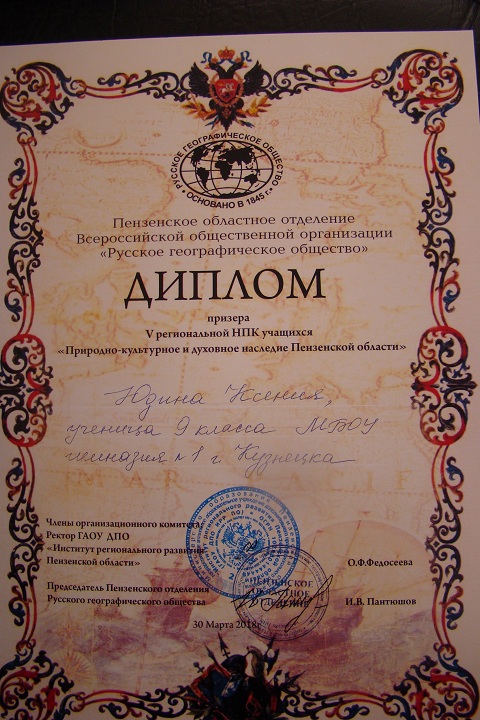 РУССКОЕ ГЕОГРАФИЧЕСКОЕ ОБЩЕСТВО
• ОСНОВАНО В 1845 г. •
Пензенское областное отделение
Всероссийской общественной организации
«Русское географическое общество»
ДИПЛОМ
призера
V региональной НПК учащихся
«Природно-культурное и духовное наследие Пензенской области»
Юдина Ксения,
ученица 9 класса МБОУ
гимназия №1 г. Кузнецка
Члены организационного комитета:
Ректор ГАОУ ДПО
«Институт регионального развития
Пензенской области»
О.Ф.Федосеева
Председатель Пензенского отделения
Русского географического общества
И.В. Пантюшов
ПЕНЗЕНСКОЕ
ОБЛАСТНОЕ
ОТДЕЛЕНИЕ
30 Марта 2018г.